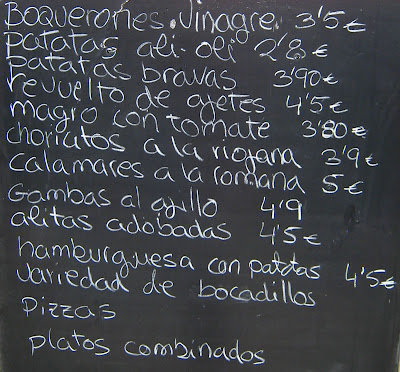 BOQUERONES Vinagre 3'5€
patatas ali-oli 2'8€
patatas bravas 3'90€
revuelto de ajetes 4'5€
magro con tomate 3'80€
choricitos a la riojana 3'9€
calamares a la romana 5€
Gambas al ajillo 4'9
alitas adobadas 4'5€
hamburguesa con patatas 4'5€
variedad de bocadillos
pizzas
platos combinados